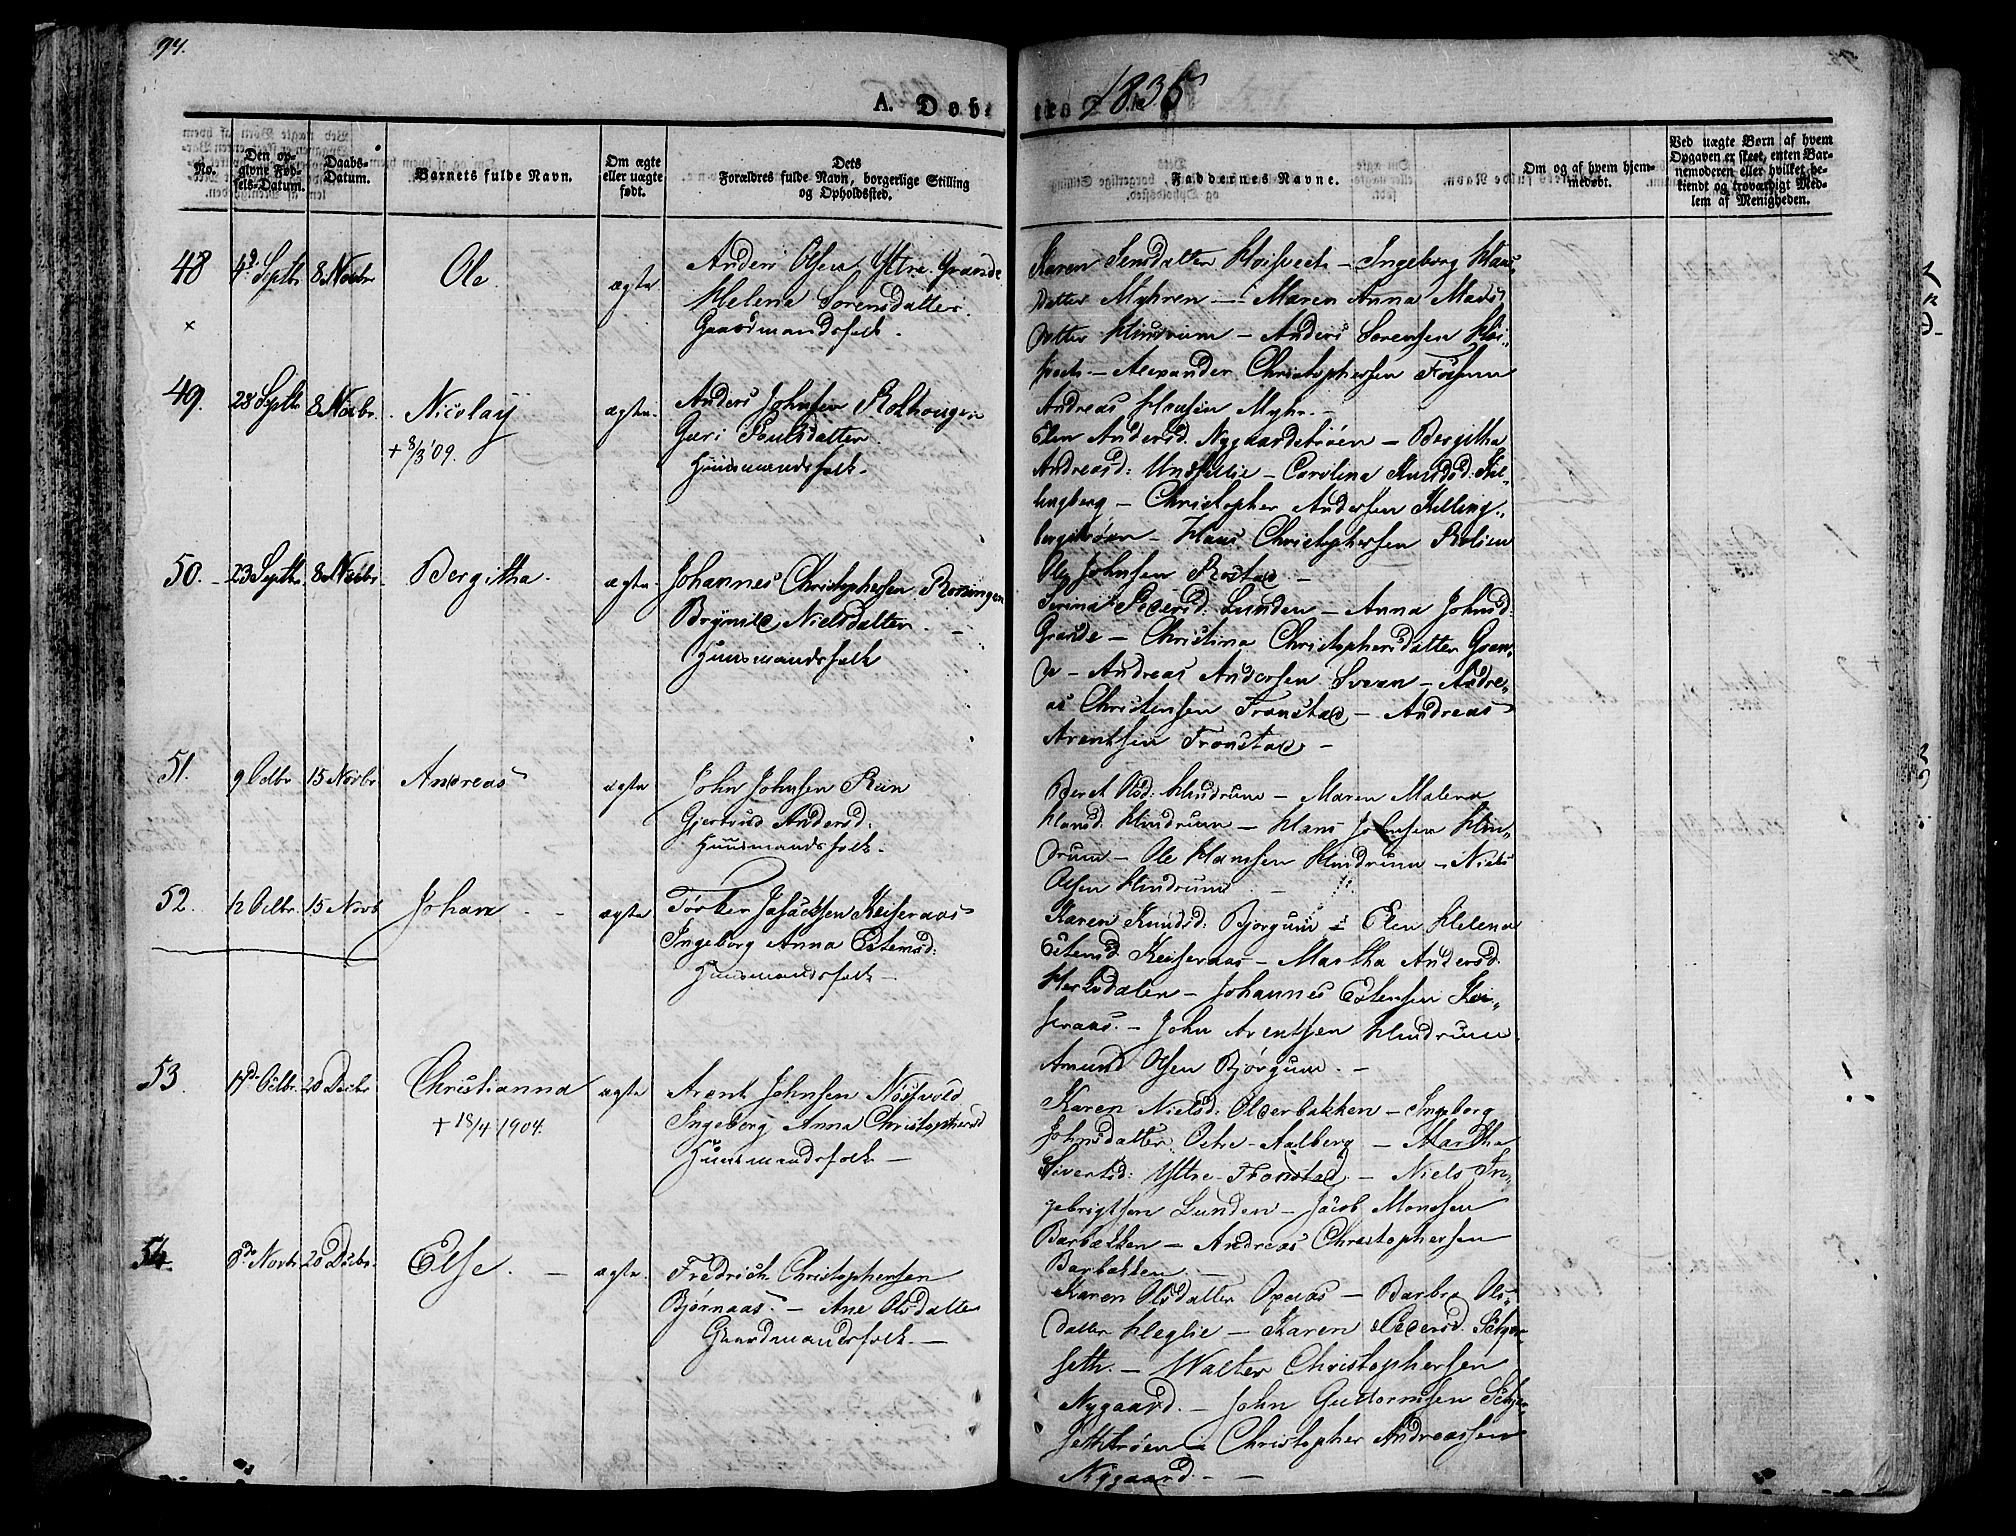 94.
A. Døbe
1835
No.
Den op-
givne Fød-
sels-Datum.
Daabs-
Datum.
Barnets fulde Navn.
Om ægte
eller uægte
født.
Dets
Forældres fulde Navn, borgerlige Stilling
og Opholdssted.
Faddernes Navne.
Om og af hvem hjem-
medøbt.
Ved uægte Børn af hvem
Opgaven er skeet, enten Bar-
nemoderen eller hvilket be-
kiendt og troværdigt Med-
lem af Menigheden.
48 4de Septbr 8 Novbr Ole ægte
Anders Olsen Ytre Grande
Helena Sorensdatter
Gaardmandsfolk
Karen Jensdatter - Ingeborg Hans
datter Myhren - Maren Anna Mads
datter Hindrum - Anders Sorensen
Alexander Christophersen Fossum
Andreas Hansen Myhr -
49. 28 Septbr 8 Novbr. Nicolay ægte
+ 8/3 09.
Anders Johnsen Rokhougen
Guri Poulsdatter
Huusmandsfolk
Elen Andersd. Nygaardstrøen - Bergitha
Andreasd: - Carolina Knudsd: Kil
lingberg - Christopher Andersen Killing
bergstrøen - Hans Christophersen Rolien
Ole Johnsen Rostad -
50. 23 Septbr 8 Novbr Bergitha ægte
Johannes Christophersen Rønningen
Brynild Nielsdatter -
Huusmandsfolk
Serina Pedersd: Lunden - Anna Johnsd:
Grande - Christina Christophersdatter Gran
de - Andreas Andersen Svean - Andre
as Christensen Tronstad - Andreas
Arentsen Tronstad -
51. 9 Octbr 15 Novbr Andreas ægte
John Johnsen Rein
Gjertrud Andersd:
Huusmandsfolk
Beret Olsd: Hindrum - Maren Malena
Hansd: Hindrum - Hans Johnsen Hin
drum - Ole Hansen Hindrum - Niels
Olsen Hindrum -
52. 12 Octbr. 15 Novb Johan - ægte
Torber Keiseraas
Ingeborg Anna Estensd:
Huusmandsfolk -
Karen Knudsd: Bjorgum - Elen Helena
Estensd: Keiseraas - Martha Andersd
Herkedalen - Johannes Estensen Kei
seraas. - John Arentsen Hindrum
Amund Olsen Bjørgum. -
53. 17de Octbr. 20 Decbr Christianna ægte
+ 18/4 1904.
Arent Johnsen Nøstvold
Ingeborg Anna Christophersd
Huusmandsfolk -
Karen Nielsd: Olderbakken - Ingeborg
Johnsdatter Østre-Aalberg - Martha
Sivertsd: Ytre-Tronstad - Niels In
gebrigtsen Lunden - Jacob Monsen
Barbakken - Andreas Christophersen
Barbakken. -
54. 6de Novbr 20 Decbr. Else. - ægte.
Fredrich Christophersen
Bjørnaas. - Ane Olsdatter
Gaardmandsfolk. -
Karen Olsdatter Opaas - Barbro Ols
datter Heglie - Karen Pedersd. Schjer
seth. - Walter Christophersen
Nygaard. - John Guttormsen Schjer
sethtrøen - Christopher Andreassen
Nygaard. - -